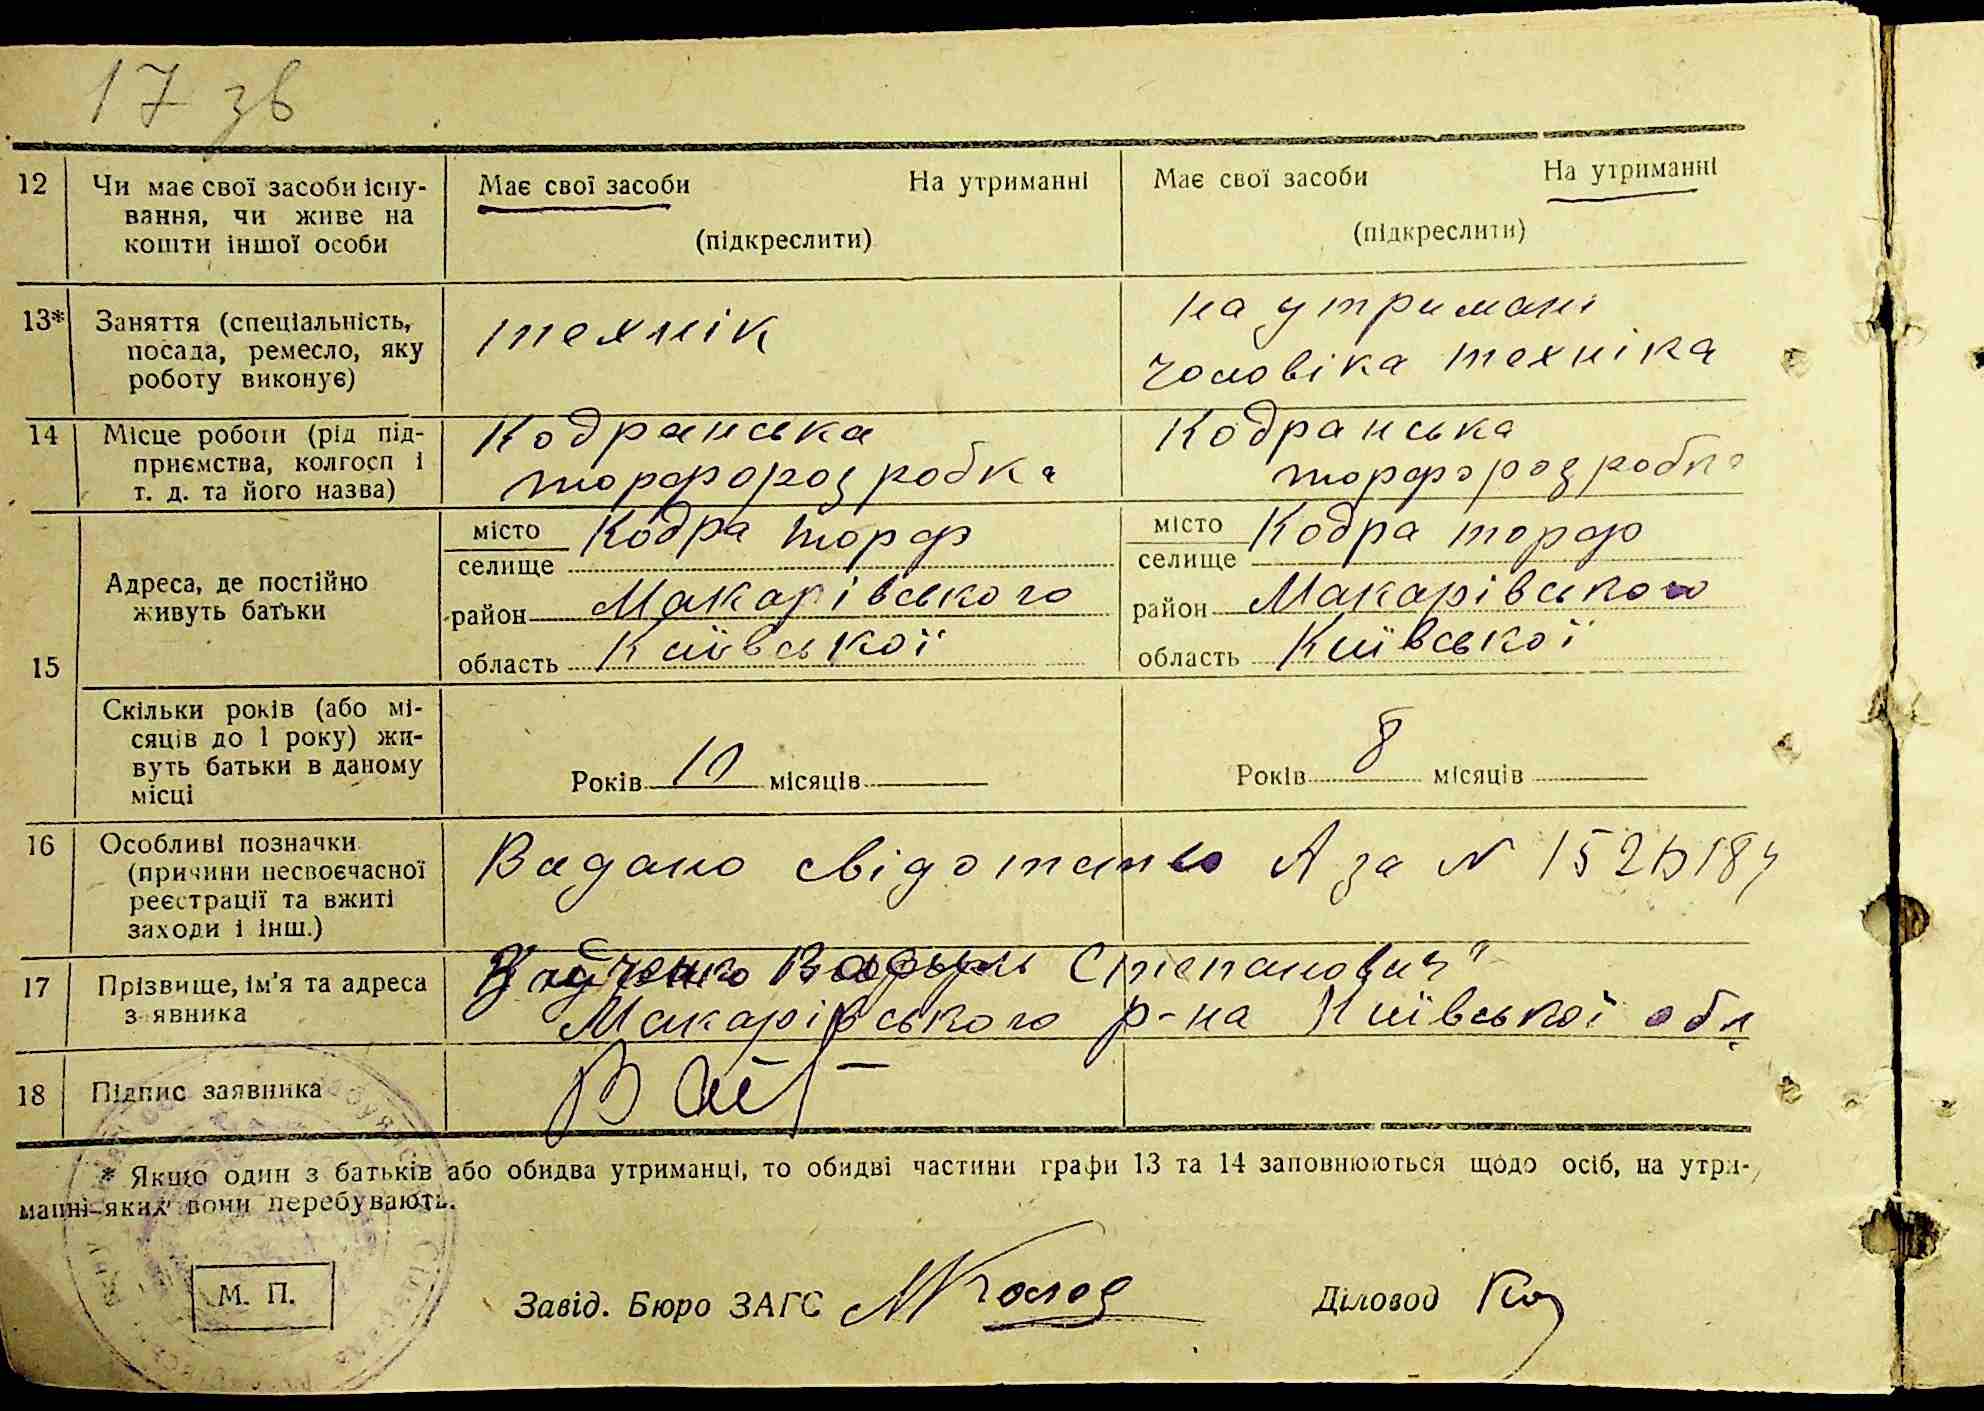 17 зв
12 Чи має свої засоби існу- Має свої засоби На утриманні Має свої засоби На утриманні
вання, чи живе на
кошти іншої особи (підкреслити) (підкреслити)
13* Заняття (спеціальність, технік на утримані
посада, ремесло, яку чоловіка техніка
роботу виконує)
14 Місце роботи (рід під- Кодранська Кодранська
приємства, колгосп і торфорозробка торфорозробка
т. д. та його назва)
15 Адреса, де постійно живуть батьки
місто Кодра торф місто Кодра торф
селище селище
район Макарівського район Макарівського
область Київської область Київської
Скільки років (або мі-
сяців до 1 року) жи-
вуть батьки в даному
місці Років 10 місяців Років 8 місяців
16 Особливі позначки Видано свідотство А за N
(причини несвоєчасної
реєстрації та вжиті
заходи і інш.)
17 Прізвище, ім'я та адреса Степанович
з явника Макарівського р-на Київської обл
18 Підпис заявника
* Якщо один з батьків або обидва утриманці, то обидві частини графи 13 та 14 заповнюються щодо осіб, на утри-
манні яких вони перебувають.
М. П. Завід. Бюро ЗАГС Діловод